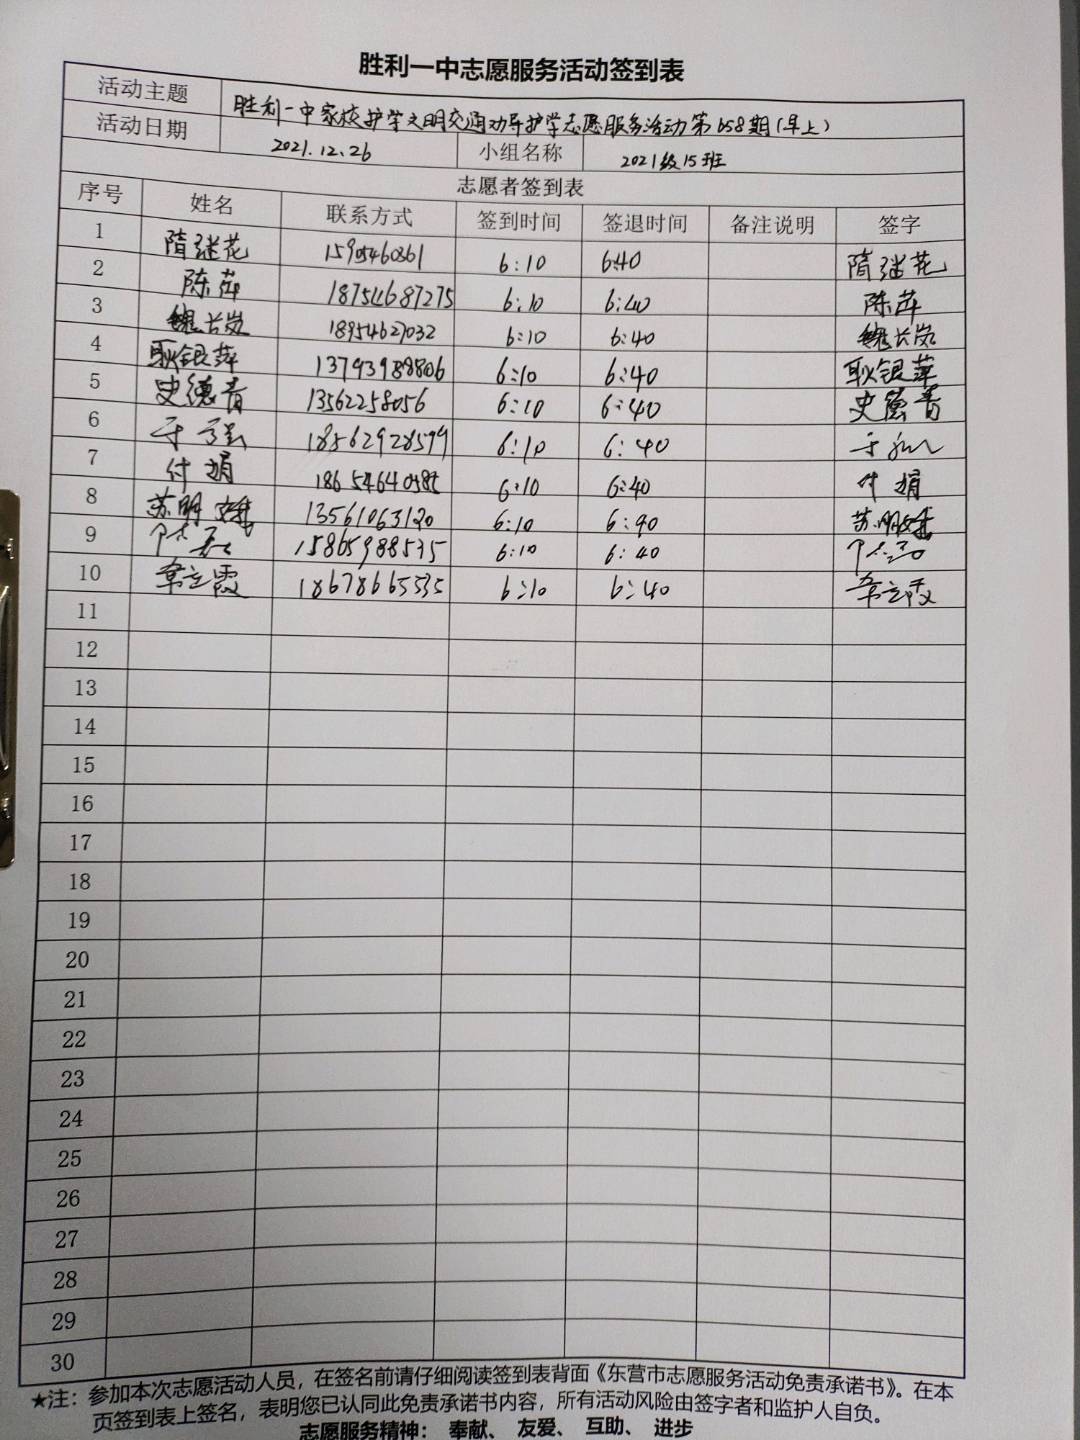 胜利一中志愿服务活动签到表
活动主题 胜利一中家校护学文明交通劝导护学志愿服务活动第658期(早上)
活动日期 2021.12.26 小组名称 2021级15班
志愿者签到表
序号 姓名 联系方式 签到时间 签退时间 备注说明 签字
1 隋继花 6:10 6:40 隋继花
2 陈萍 18754687275 6:10 6:40 陈萍
3 魏长岚 18954627032 6:10 6:40 魏长岚
4 耿银萍 13793988806 6:10 6:40 耿银萍
5 史德青 13562258056 6:10 6:40 史德青
6 于 18562928599 6:10 6:40 于
7 付娟 6:10 6:40 付娟
8 苏明 13561063120 6:10 6:40 苏明
9 15865988535 6:10 6:40
10 立霞 18678665535 6:10 6:40 立霞
11
12
13
14
15
16
17
18
19
20
21
22
23
24
25
26
27
28
29
30
★注：参加本次志愿活动人员，在签名前请仔细阅读签到表背面《东营市志愿服务活动免责承诺书》。在本
页签到表上签名，表明您已认同此免责承诺书内容，所有活动风险由签字者和监护人自负。
志愿服务精神： 奉献、 友爱、 互助、 进步